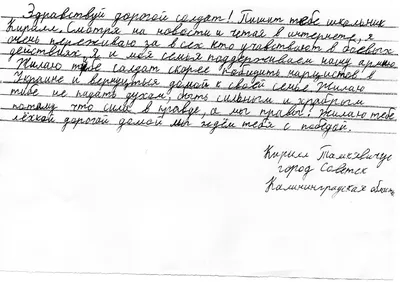 Здравствуй дорогой солдат! Пишит тебе школьник
Кирилл. Смотря на новости и читая в интернете, я
очень переживаю за всех кто учавствуют в боевых
действиях. Я и моя семья поддерживаем нашу армию
Жилаю тебе солдат скорее победить нарцистов в
Украине и вернуться домой к своей семье. Жилаю
тибе не падать духом, быть сильным и храбрым
потому что сила в правде, а мы правы! Жилаю тебе
лёхкой дорогой домой мы ждём тебя с победой.
Кирилл
город Советск
Калининградская область